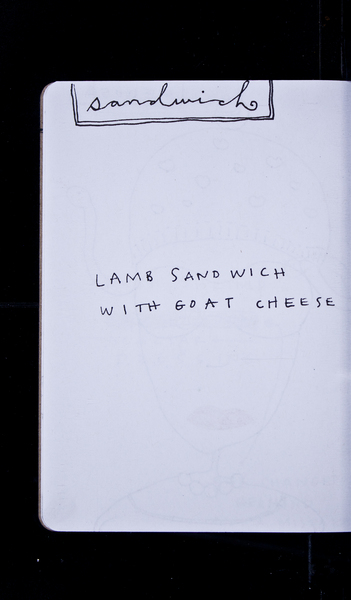 sandwich
LAMB SANDWICH
WITH GOAT CHEESE